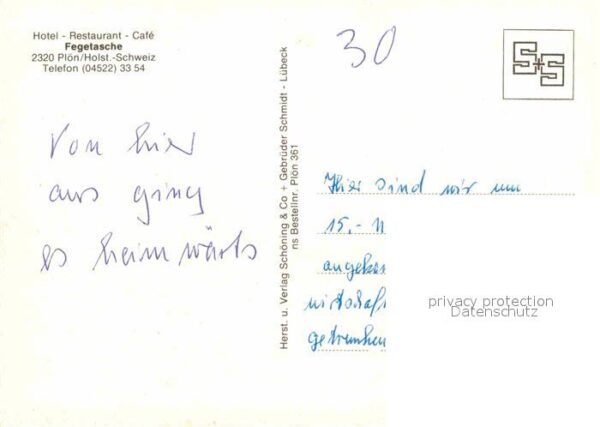 Hotel - Restaurant - Café
Fegetasche
2320 Plön/Holst.-Schweiz
Telefon (04522) 33 54
30
S+S
Von hier
aus ging
es heimwärts
Herst. u. Verlag Schöning & Co + Gebrüder Schmidt - Lübeck
ns Bestellnr. Plön 361
Hier sind wir um
15.-
angekom
wirtschaf
getrunken
privacy protection
Datenschutz